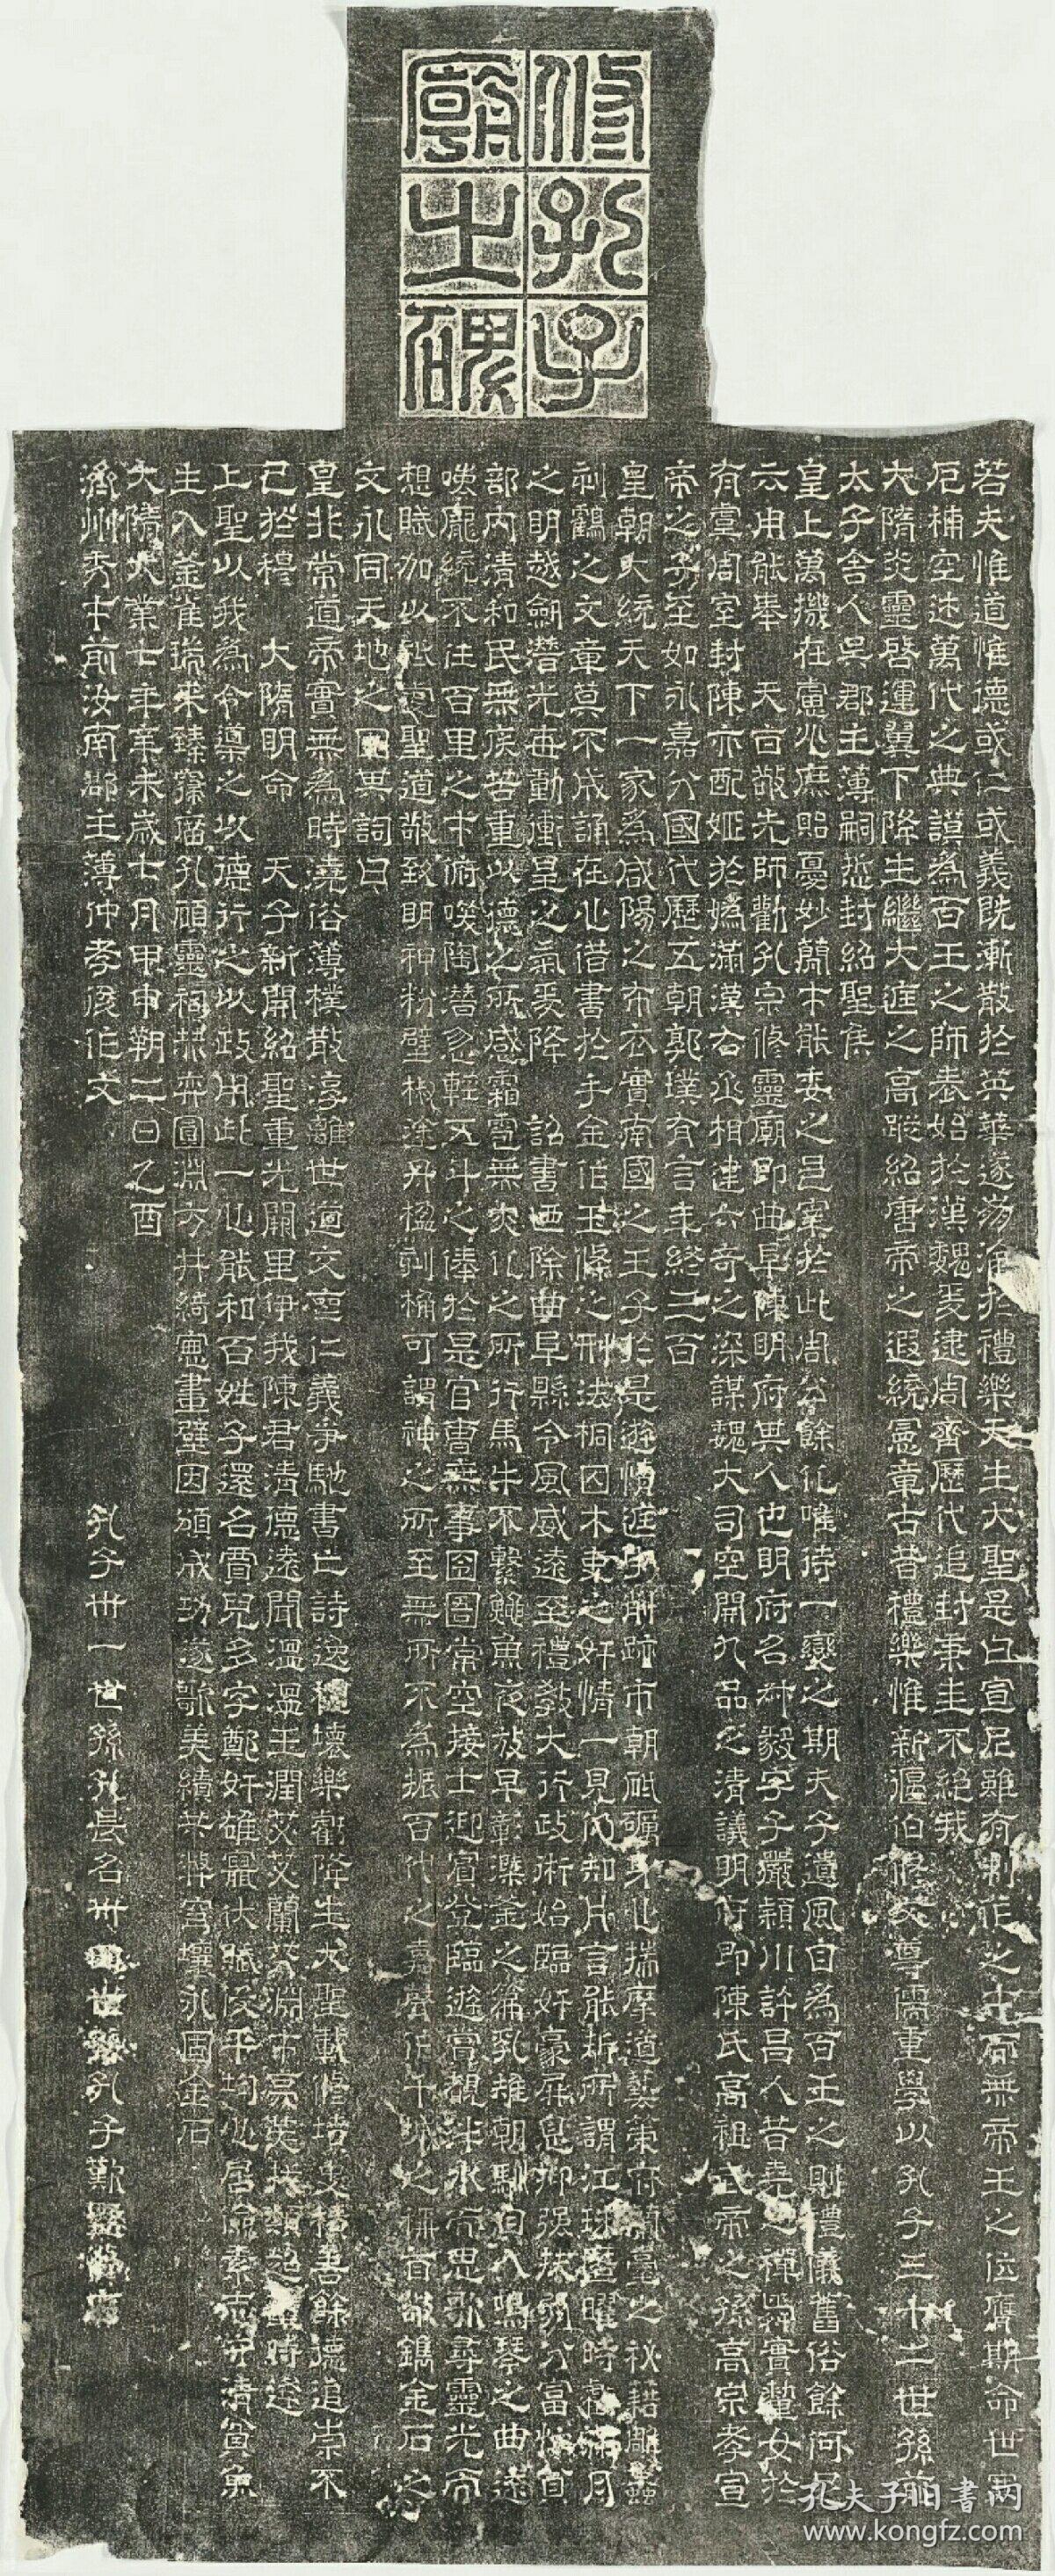 脩孔子
廟之碑
若夫惟道惟德或仁或義既漸散於英華遂荡淪於禮樂天生大聖是曰宣尼雖有制作之才而無帝王之位膺期命世塞
厄補空述萬代之典謨為百王之師表始於漢魏爰逮周齊歷代追封秉圭不絕我
大隋炎靈啓運翼下降生繼大庭之高蹤紹唐帝之遐統憲章古昔禮樂惟新偃伯修文尊儒重學以孔子三十二世孫前
太子舍人吳郡主薄嗣悊封紹聖侯
皇上萬機在慮兆庶貽憂妙簡才能委之邑宰於此周公餘化唯待一變之期夫子遺風自為百王之則禮儀舊俗餘何足
云用能奉 天旨敬先師勸孔宗修靈廟即曲阜陳明府其人也明府名叔毅字子嚴潁川許昌人昔堯之禪舜實釐女於
有虞周室封陳亦配姬於媯滿漢右丞相建六奇之深謀魏大司空開九品之清議明府即陳氏高祖武帝之孫高宗孝宣
帝之子至如永嘉分國代歷五朝郭璞有言年終三百
皇朝大統天下一家為咸陽之布衣實南國之王子於是遊情庭宇削跡市朝砥礪身心揣摩道藝策府蘭臺之秘籍雕蟲
刻鶴之文章莫不成誦在心借書於手金作玉條之刑法桐囚木吏之奸情一見仍知片言能折所謂江珠匿曜時虧滿月
之明越劍潜光每動衝星之氣爰降 詔書迺除曲阜縣令風威遠至禮教大行政術始臨奸豪屏息抑强扶弱分富恤貧
部內清和民無疾苦重以德之所感霜雹無災化之所行馬牛不繫蠅魚夜放早彰溧釜之篇乳雉朝馴自入鳴琴之曲遠
嗤龐統不任百里之才俯唉陶潜忽輕五斗之俸於是官曹無事囹圄常空接士迎賓登臨遊賞覩泮水而思歌尋靈光而
想賦加以祗虔聖道敬致明神粉壁椒塗丹楹刻桷可謂神之所至無所不為振百代之嘉聲作十城之稱首敬鐫金石之
文永同天地之固其詞曰
皇非常道帝實無為時澆俗薄樸散淳離世道交喪仁義爭馳書亡詩逸禮壞樂虧降生大聖載脩墳史積善餘德追崇不
已於穆 大隋明命 天子新開紹聖重光闕里伊我陳君清德遠聞溫溫玉潤艾艾蘭芬淵才亮茂拔類超羣時逢
上聖以我為令導之以德行之以政用此一心能和百姓子還名賈兒多字鄭奸雄竄伏賦役平均心居儉素志守清貧魚
生入釜雀瑞來臻寮廟孔碩靈祠恭弈圓淵方井綺窻畫壁因頌成功遂歌美績共弊穹壤永固金石
大隋大業七年辛未歲七月甲申朔二日乙酉
濟州秀才前汝南郡主薄仲孝俊作文
孔子卅一世孫孔長名卅世孫孔子歎
孔夫子旧书网
www.kongfz.com